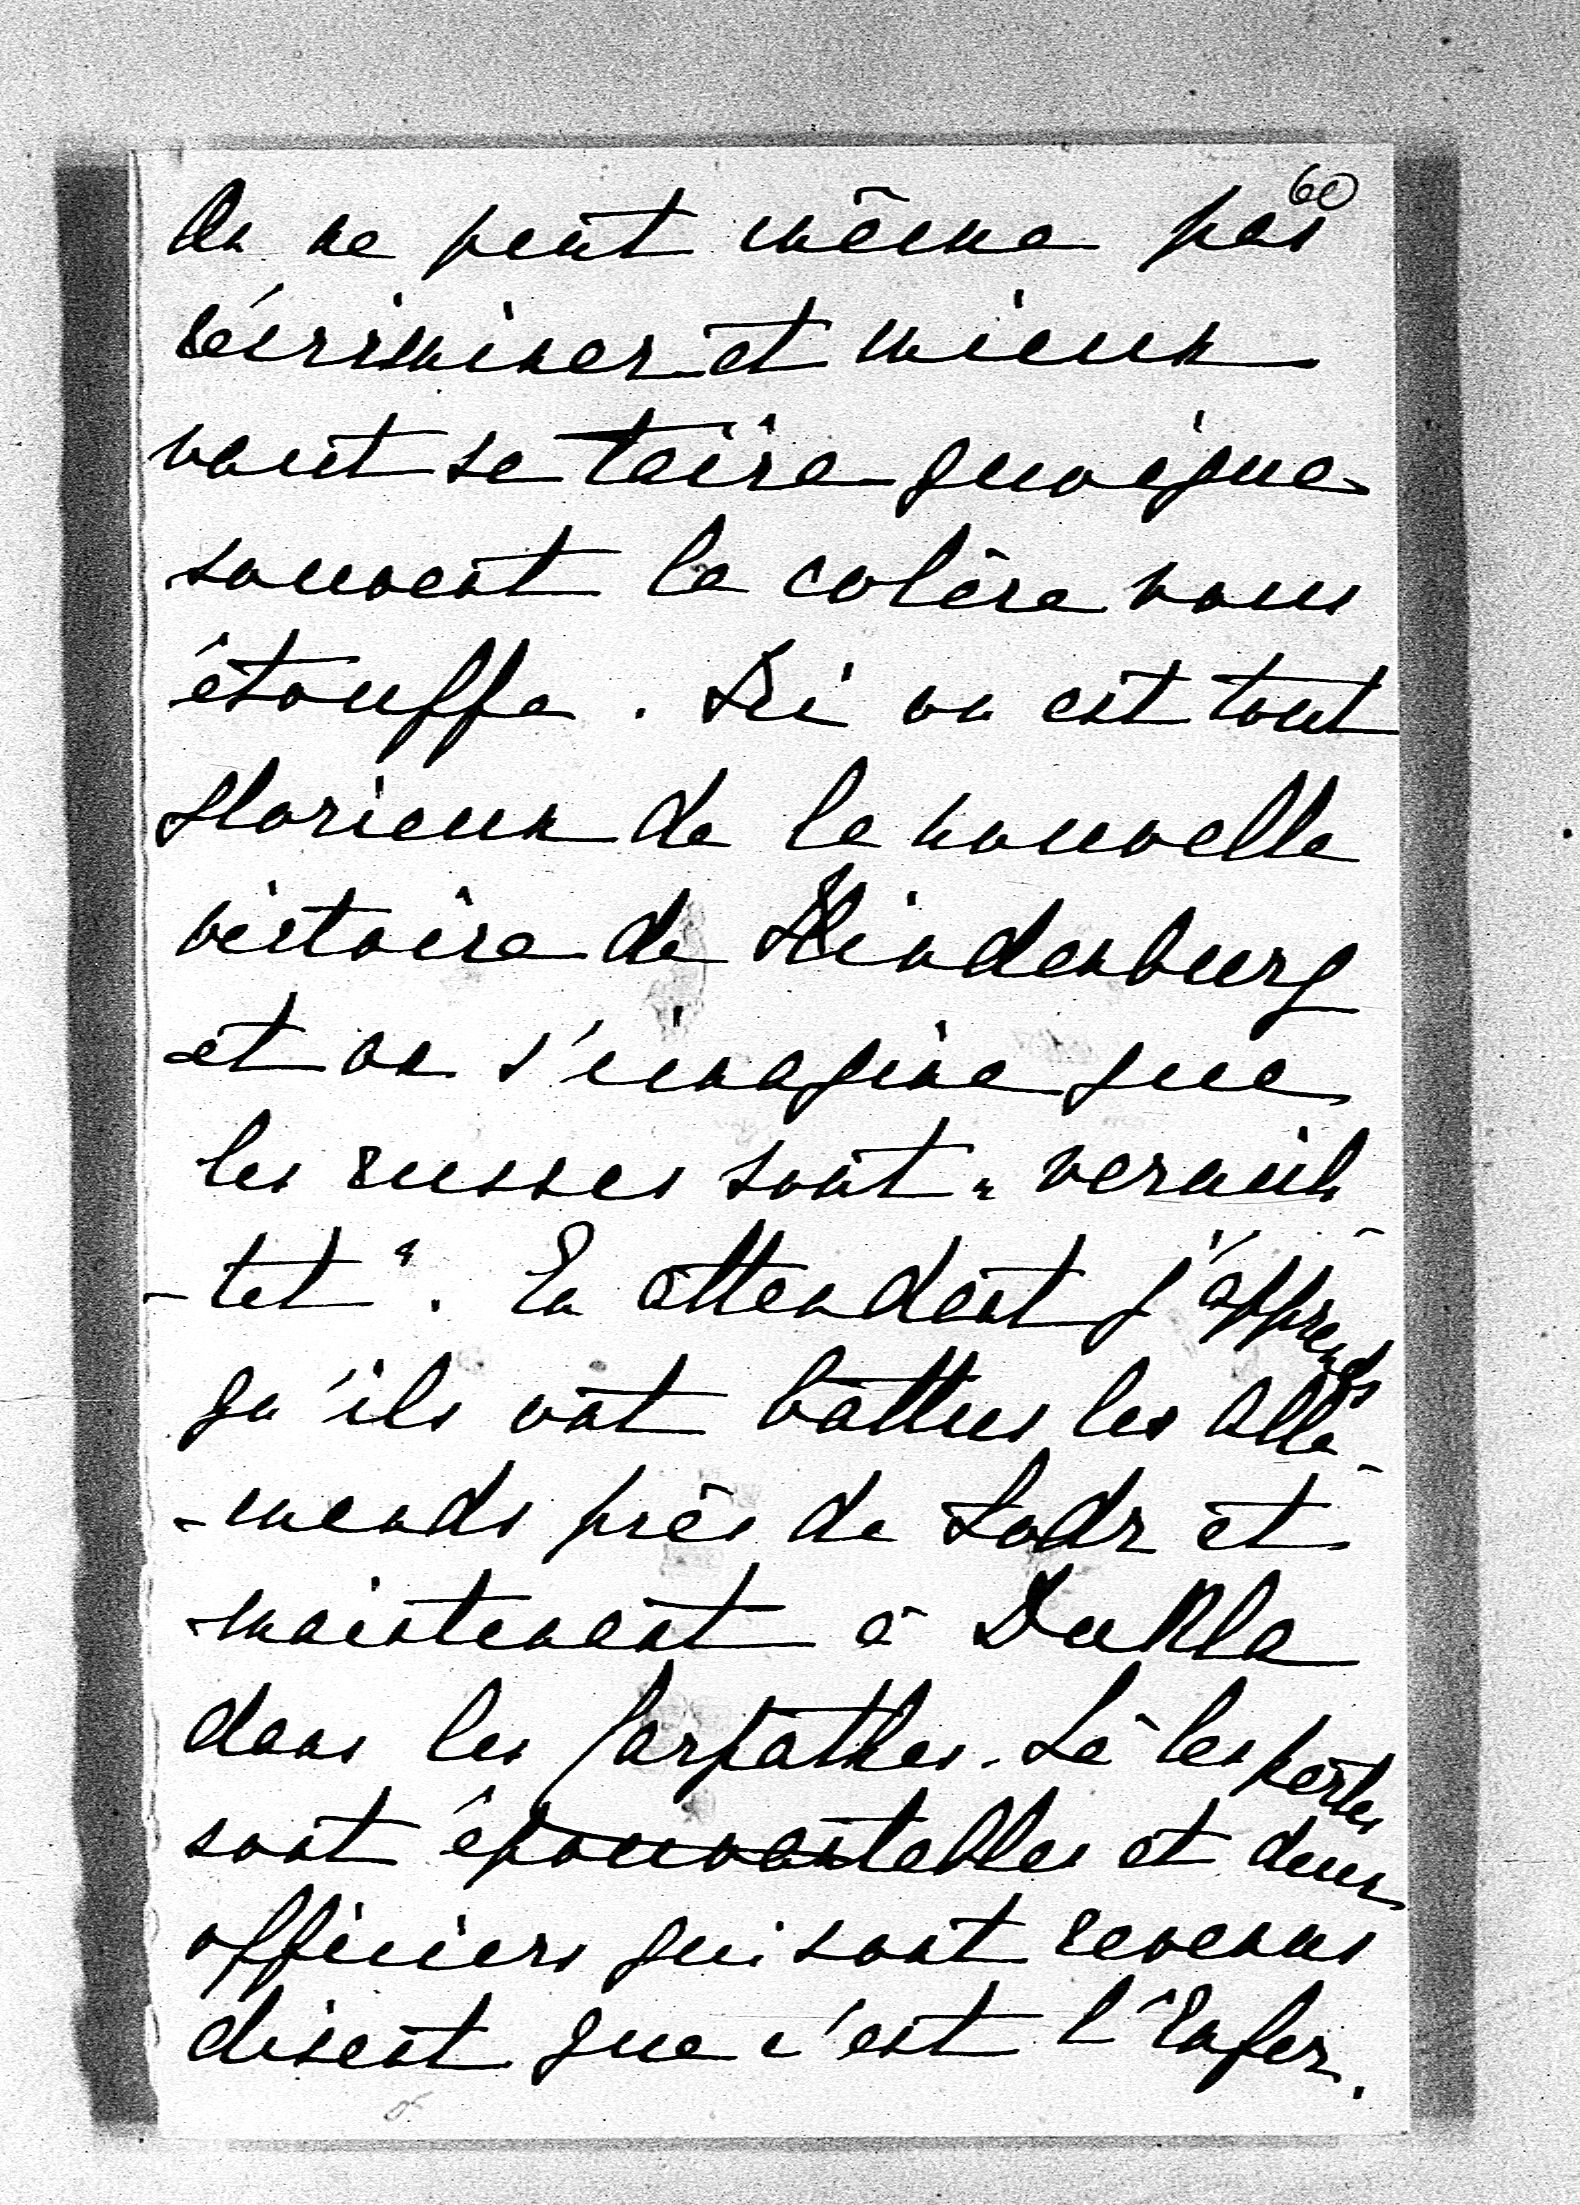 60
On ne peut même pas
récriminer et mieux
vaut se taire quoique
souvent la colère vous
étouffe. Ici on est tout
glorieux de la nouvelle
victoire de Hindenburg
et on s'imagine que
les russes sont „ vernich
-tet ". En attendant j'apprends
qu'ils ont battus les Alle-
-mands près de Lodz et
maintenant à Dukla
dans les Carpathes. Là les pertes
sont épouvantables et deux
officiers qui sont revenus
disent que c'est l'Enfer.